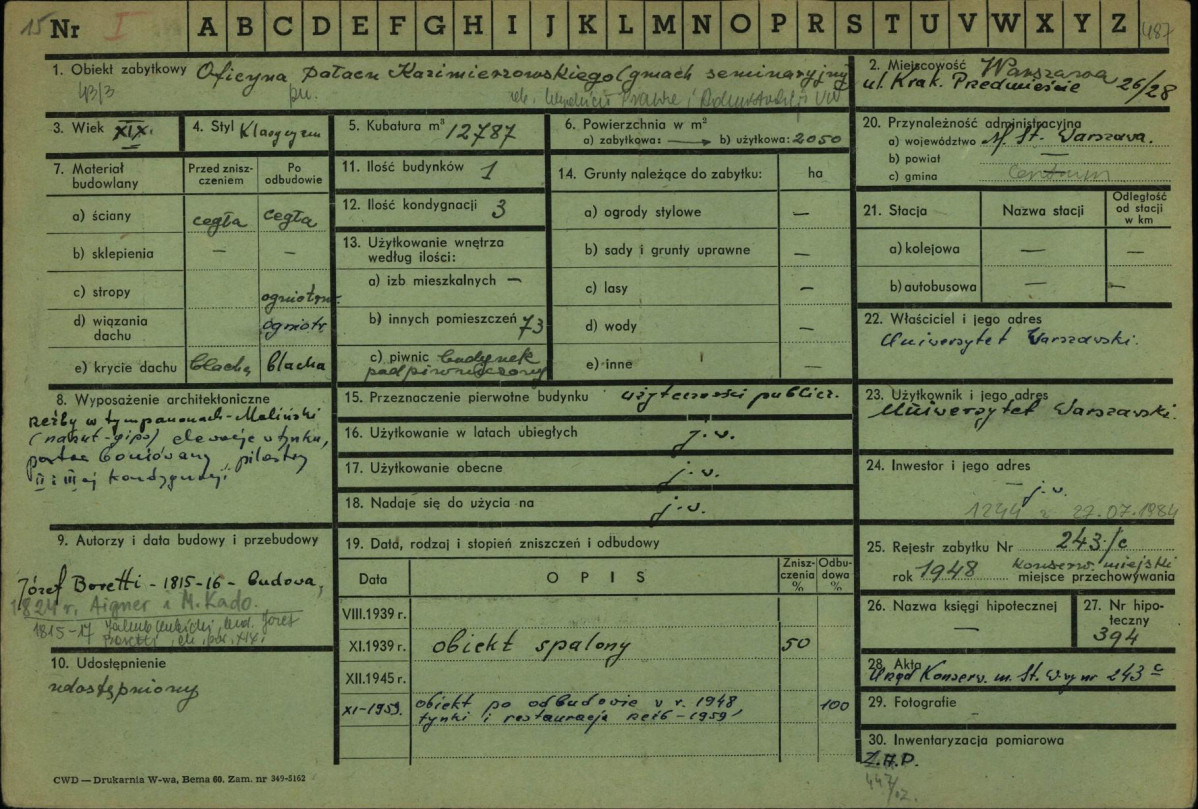 15 Nr I A B C D E F G H I J K L M N O P R S T U V W X Y Z 487
1. Obiekt zabytkowy Oficyna pałacu Kazimierzowskiego (gmach seminaryjny
pn.
2. Miejscowość Warszawa
ul. Krak. Przedmieście 26/28
3. Wiek XIX.
4. Styl Klasycyzm
5. Kubatura m³ 12787
6. Powierzchnia w m²
a) zabytkowa: b) użytkowa: 2050
7. Materiał budowlany
Przed zniszczeniem
Po odbudowie
a) ściany cegła cegła
b) sklepienia — —
c) stropy ogniotrw.
d) wiązania dachu ogniotr.
e) krycie dachu blacha blacha
8. Wyposażenie architektoniczne
rzeźby w tympanonach - Maliński
(narzut-gips) elewacje w tynku,
portal boniowany, pilastry
II i III ej kondygnacji
9. Autorzy i data budowy i przebudowy
Józef Boretti - 1815-16 - budowa,
1824 r. Aigner i M. Kado.
1815-17 Jakub Kubicki, bud. Józef
Boretti
10. Udostępnienie
udostępniony
11. Ilość budynków 1
12. Ilość kondygnacji 3
13. Użytkowanie wnętrza
według ilości:
a) izb mieszkalnych —
b) innych pomieszczeń 73
c) piwnic budynek
podpiwniczony
14. Grunty należące do zabytku: ha
a) ogrody stylowe —
b) sady i grunty uprawne —
c) lasy —
d) wody —
e) inne —
15. Przeznaczenie pierwotne budynku użyteczności publicz.
16. Użytkowanie w latach ubiegłych j.w.
17. Użytkowanie obecne j.w.
18. Nadaje się do użycia na j.w.
19. Data, rodzaj i stopień zniszczeń i odbudowy
Data OPIS Zniszczenia % Odbudowa %
VIII.1939 r.
XI.1939 r. obiekt spalony 50
XII.1945 r.
XI-1959. obiekt po odbudowie w r. 1948 100
tynki i restauracja rzeźb - 1959
20. Przynależność administracyjna
a) województwo M. St. Warszawa.
b) powiat —
c) gmina Centrum
21. Stacja Nazwa stacji Odległość od stacji w km
a) kolejowa — —
b) autobusowa — —
22. Właściciel i jego adres
Uniwersytet Warszawski.
23. Użytkownik i jego adres
Uniwersytet Warszawski.
24. Inwestor i jego adres
— j.w.
1244 z 27.07.1984
25. Rejestr zabytku Nr 243/c
rok 1948 Konserw. miejski
miejsce przechowywania
26. Nazwa księgi hipotecznej
—
27. Nr hipoteczny
394
28. Akta
Urząd Konserw. m. St. W-wy nr 243 c
29. Fotografie
—
30. Inwentaryzacja pomiarowa
Z.A.P.
CWD — Drukarnia W-wa, Bema 60. Zam. nr 349-5162